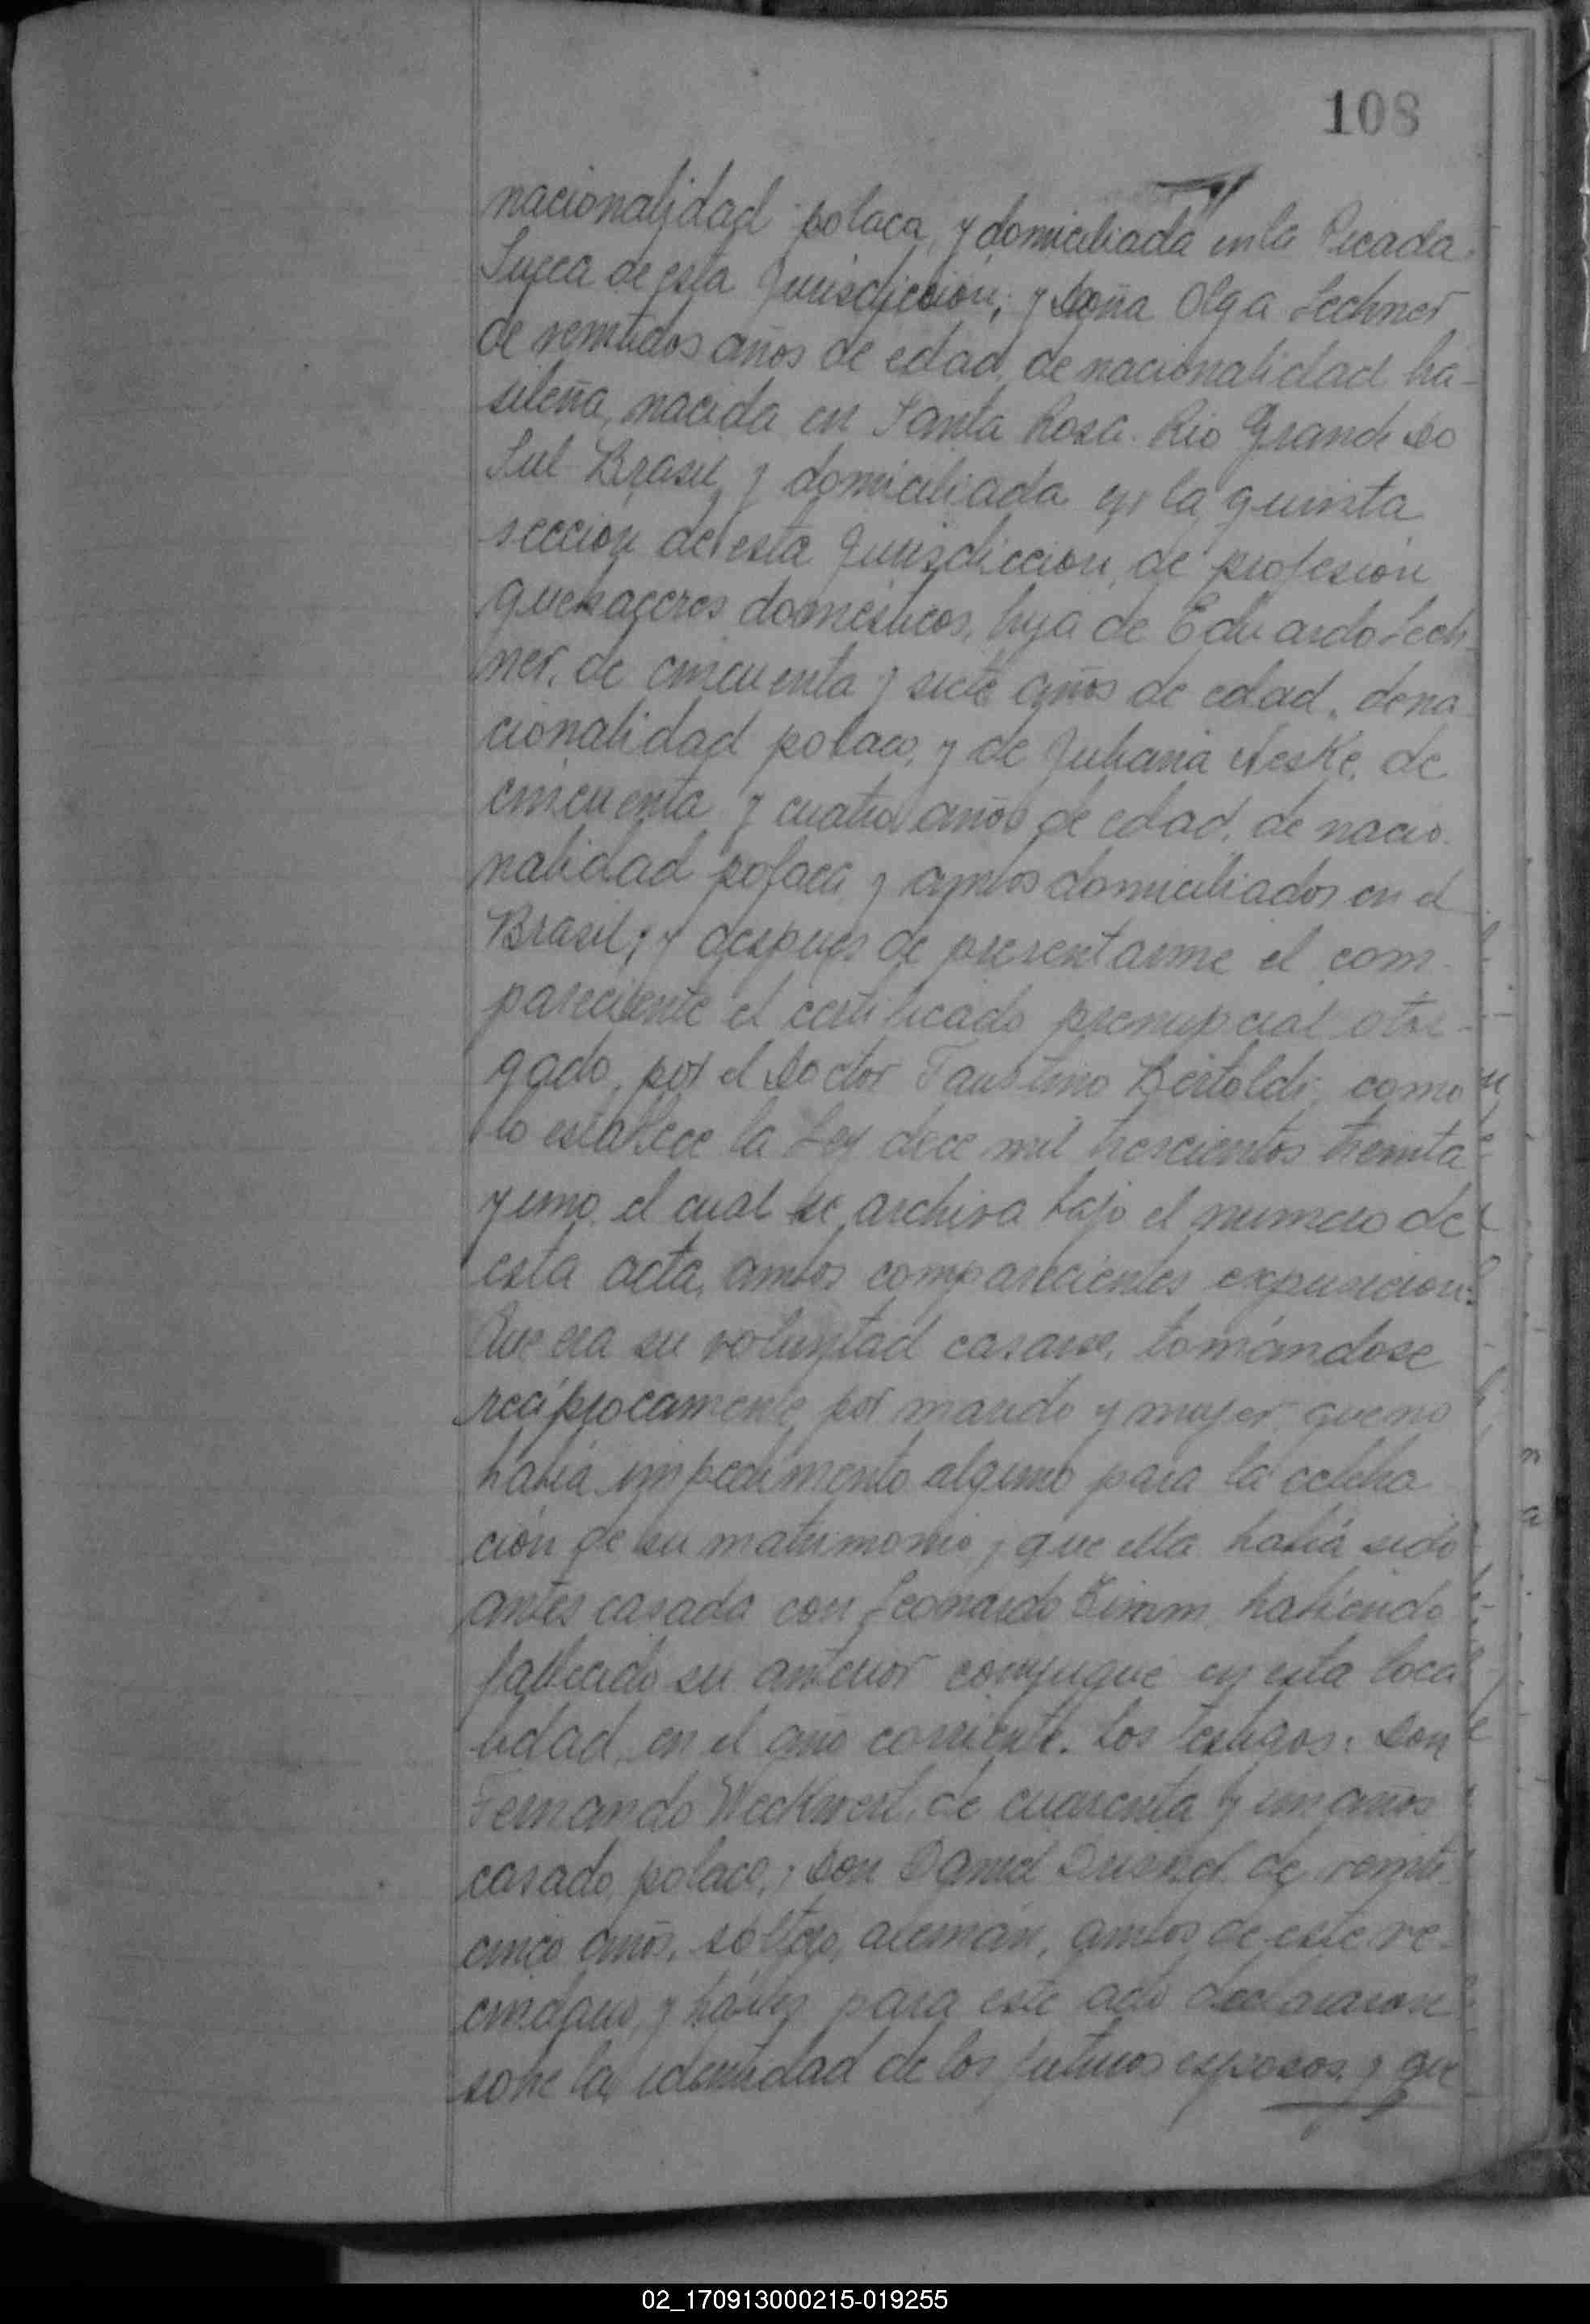 108
nacionalidad polaca, y domiciliada en la Picada
Sueca de esta Jurisdicción; y Doña Olga Lechner
de ventidos años de edad, de nacionalidad bra-
sileña, nacida en Santa Rosa. Rio Grande Do
Sul Brasil y domiciliada en la quinta
sección de esta Jurisdicción, de profesión
quehaceres domésticos, hija de Eduardo Lech
ner, de cincuenta y siete años de edad, de na
cionalidad polaco, y de Juliana Neske, de
cincuenta y cuatro años de edad, de nacio-
nalidad polaca, y ambos domiciliados en el
Brasil; y después de presentarme el com-
pareciente el certificado prenupcial otor-
gado, por el Doctor Faustino Bertoldi, como
lo establece la Ley doce mil trescientos treinta
y uno, el cual se archiva bajo el numero de
esta acta, ambos comparecientes expusieron:
Que era su voluntad casarse, tomándose
recíprocamente, por marido y mujer, que no
había impedimento alguno para la celebra
ción de su matrimonio, y que ella había sido
antes casada con Leonardo habiendo
fallecido su anterior conyugue en esta loca
lidad, en el año corriente. Los testigos: Don
Fernando Weckwert, de cuarenta y un años
casado, polaco, y Don Daniel de venti-
cinco años, soltero, alemán, ambos de este ve-
cindario, y hábiles para este acto declararon
sobre la identidad de los futuros esposos, y que
02_170913000215-019255